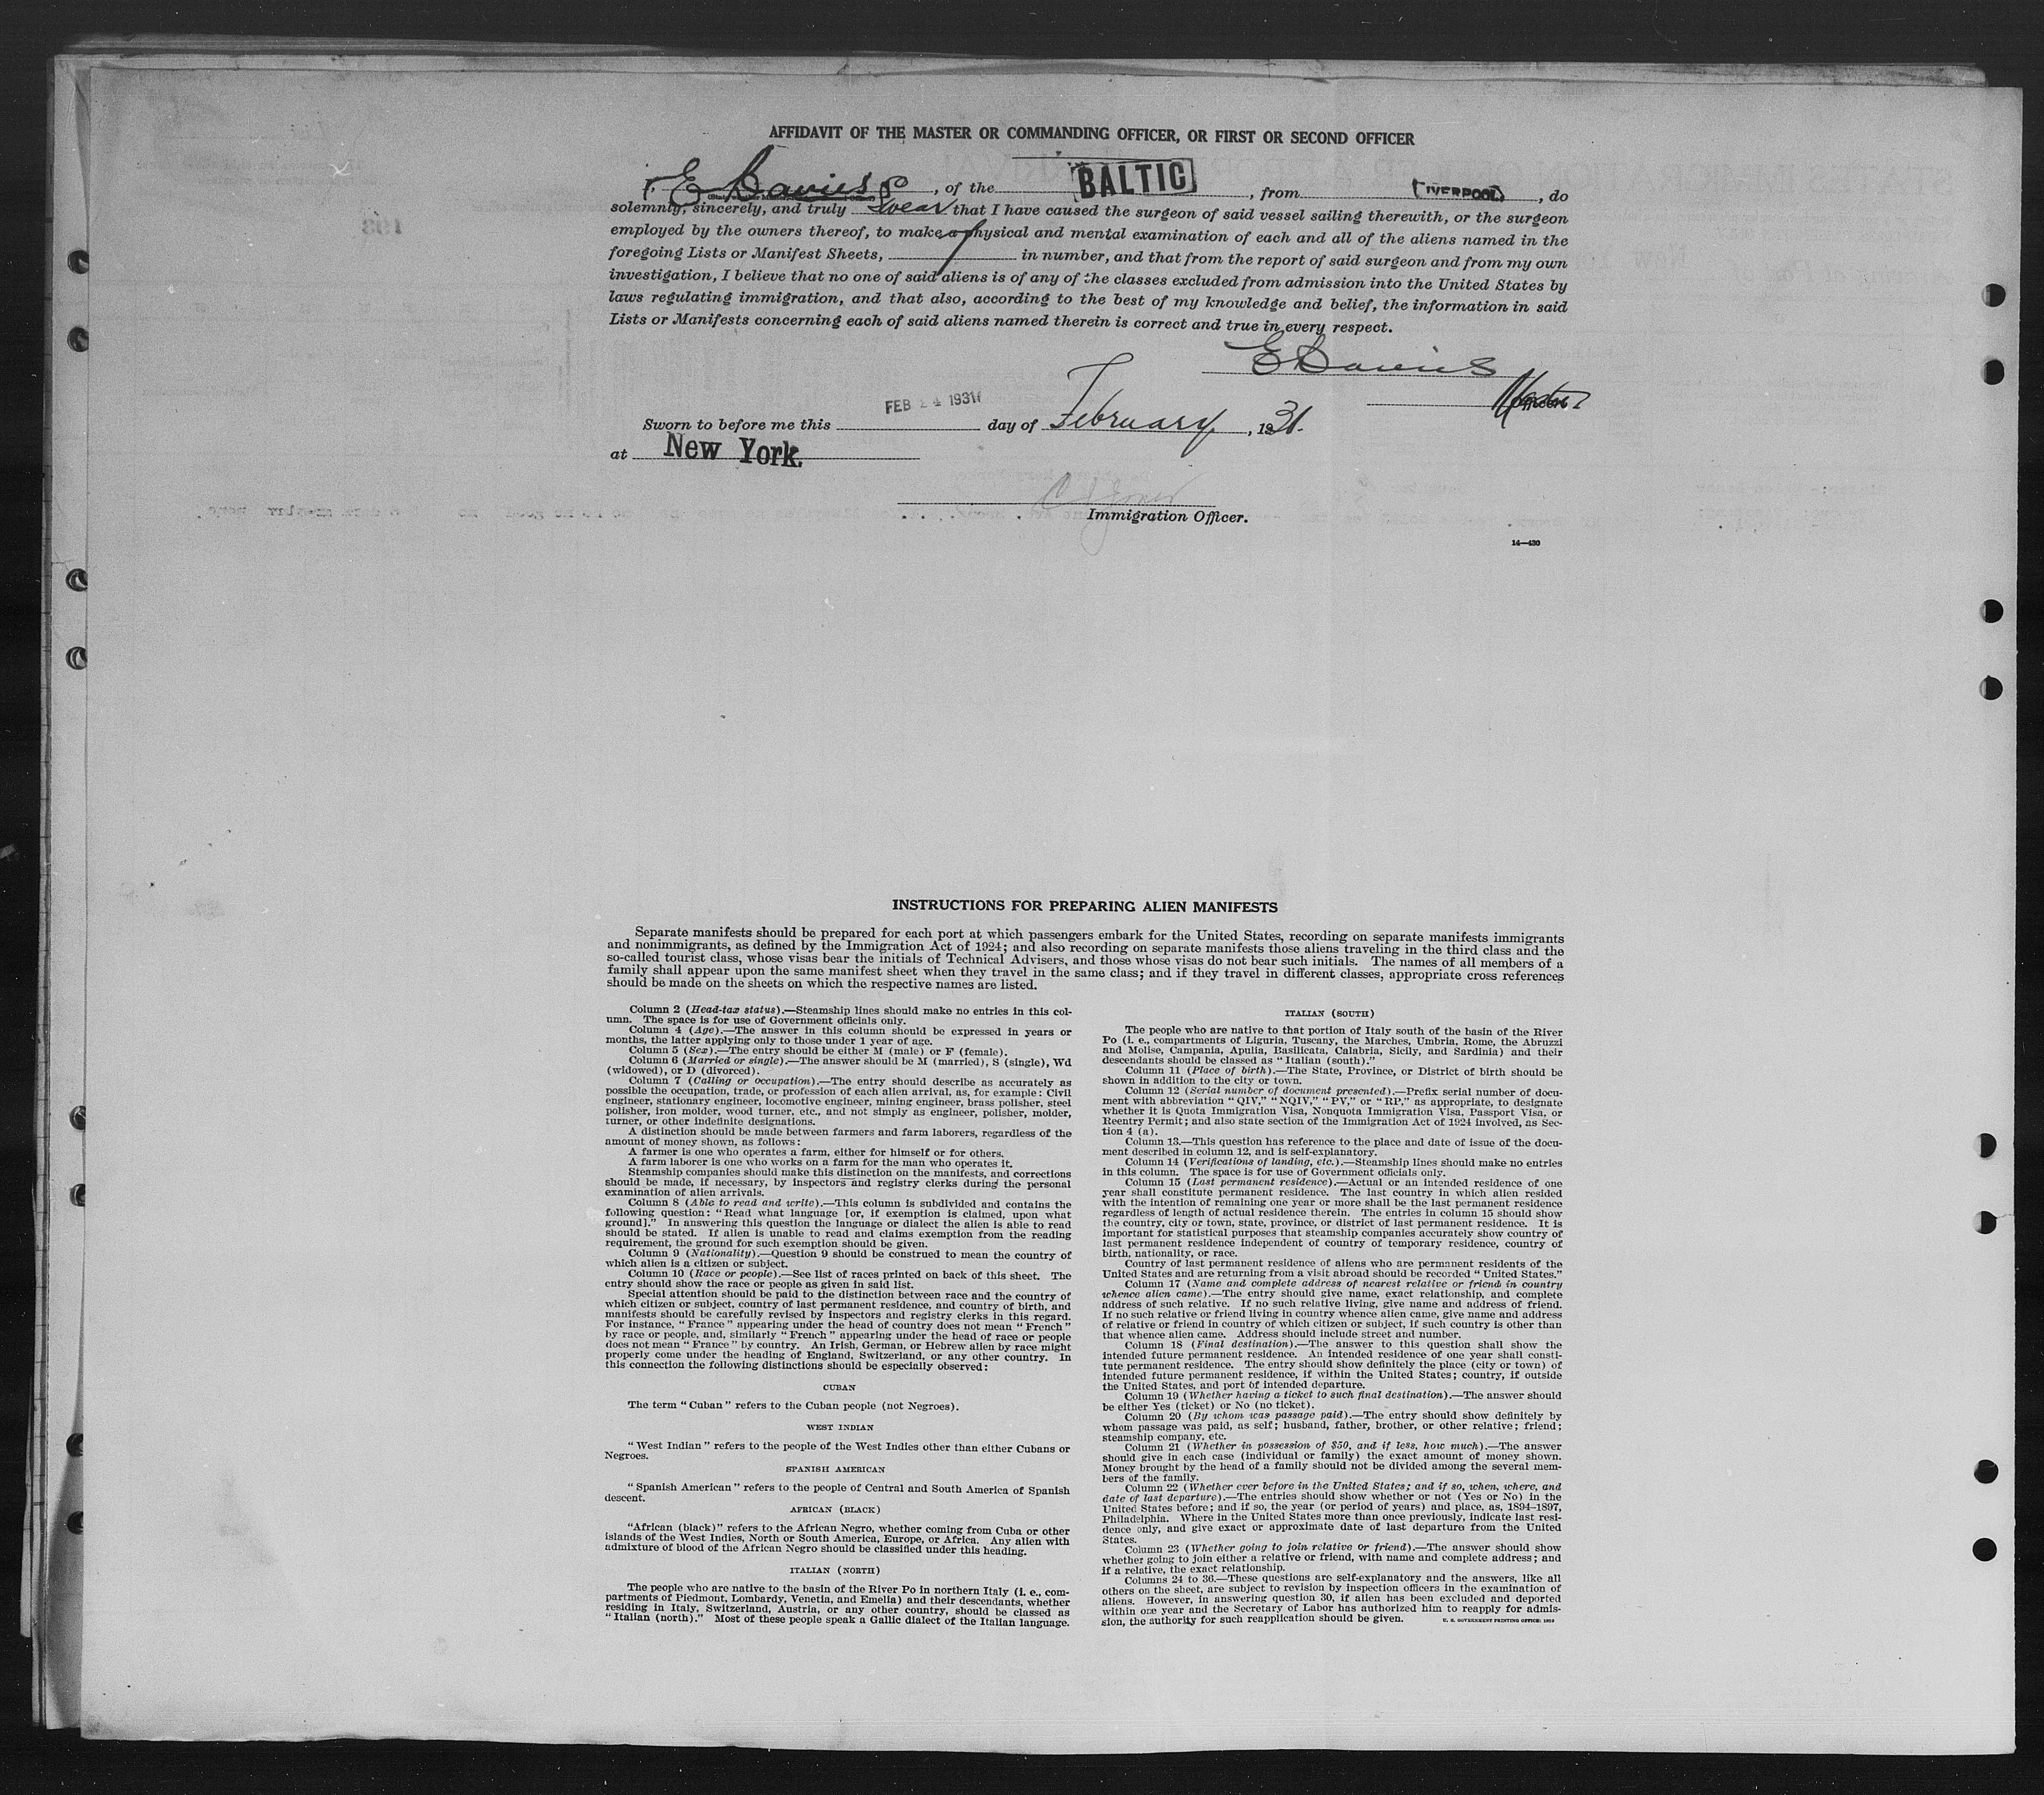 AFFIDAVIT OF THE MASTER OR COMMANDING OFFICER, OR FIRST OR SECOND OFFICER
I, E Davies, of the BALTIC, from LIVERPOOL, do
solemnly, sincerely, and truly swear that I have caused the surgeon of said vessel sailing therewith, or the surgeon
employed by the owners thereof, to make a physical and mental examination of each and all of the aliens named in the
foregoing Lists or Manifest Sheets, 1 in number, and that from the report of said surgeon and from my own
investigation, I believe that no one of said aliens is of any of the classes excluded from admission into the United States by
laws regulating immigration, and that also, according to the best of my knowledge and belief, the information in said
Lists or Manifests concerning each of said aliens named therein is correct and true in every respect.
E Davies
Master
Officer.
FEB 24 1931
Sworn to before me this day of February, 1931.
at New York.
Immigration Officer.
14—430
INSTRUCTIONS FOR PREPARING ALIEN MANIFESTS
Separate manifests should be prepared for each port at which passengers embark for the United States, recording on separate manifests immigrants
and nonimmigrants, as defined by the Immigration Act of 1924; and also recording on separate manifests those aliens traveling in the third class and the
so-called tourist class, whose visas bear the initials of Technical Advisers, and those whose visas do not bear such initials. The names of all members of a
family shall appear upon the same manifest sheet when they travel in the same class; and if they travel in different classes, appropriate cross references
should be made on the sheets on which the respective names are listed.
Column 2 (Head-tax status).—Steamship lines should make no entries in this col-
umn. The space is for use of Government officials only.
Column 4 (Age).—The answer in this column should be expressed in years or
months, the latter applying only to those under 1 year of age.
Column 5 (Sex).—The entry should be either M (male) or F (female).
Column 6 (Married or single).—The answer should be M (married), S (single), Wd
(widowed), or D (divorced).
Column 7 (Calling or occupation).—The entry should describe as accurately as
possible the occupation, trade, or profession of each alien arrival, as, for example: Civil
engineer, stationary engineer, locomotive engineer, mining engineer, brass polisher, steel
polisher, iron molder, wood turner, etc., and not simply as engineer, polisher, molder,
turner, or other indefinite designations.
A distinction should be made between farmers and farm laborers, regardless of the
amount of money shown, as follows:
A farmer is one who operates a farm, either for himself or for others.
A farm laborer is one who works on a farm for the man who operates it.
Steamship companies should make this distinction on the manifests, and corrections
should be made, if necessary, by inspectors and registry clerks during the personal
examination of alien arrivals.
Column 8 (Able to read and write).—This column is subdivided and contains the
following question: "Read what language [or, if exemption is claimed, upon what
ground]." In answering this question the language or dialect the alien is able to read
should be stated. If alien is unable to read and claims exemption from the reading
requirement, the ground for such exemption should be given.
Column 9 (Nationality).—Question 9 should be construed to mean the country of
which alien is a citizen or subject.
Column 10 (Race or people).—See list of races printed on back of this sheet. The
entry should show the race or people as given in said list.
Special attention should be paid to the distinction between race and the country of
which citizen or subject, country of last permanent residence, and country of birth, and
manifests should be carefully revised by inspectors and registry clerks in this regard.
For instance, "France" appearing under the head of country does not mean "French"
by race or people, and, similarly "French" appearing under the head of race or people
does not mean "France" by country. An Irish, German, or Hebrew alien by race might
properly come under the heading of England, Switzerland, or any other country. In
this connection the following distinctions should be especially observed:
CUBAN
The term "Cuban" refers to the Cuban people (not Negroes).
WEST INDIAN
"West Indian" refers to the people of the West Indies other than either Cubans or
Negroes.
SPANISH AMERICAN
"Spanish American" refers to the people of Central and South America of Spanish
descent.
AFRICAN (BLACK)
"African (black)" refers to the African Negro, whether coming from Cuba or other
islands of the West Indies, North or South America, Europe, or Africa. Any alien with
admixture of blood of the African Negro should be classified under this heading.
ITALIAN (NORTH)
The people who are native to the basin of the River Po in northern Italy (i. e., com-
partments of Piedmont, Lombardy, Venetia, and Emelia) and their descendants, whether
residing in Italy, Switzerland, Austria, or any other country, should be classed as
"Italian (north)." Most of these people speak a Gallic dialect of the Italian language.
ITALIAN (SOUTH)
The people who are native to that portion of Italy south of the basin of the River
Po (i. e., compartments of Liguria, Tuscany, the Marches, Umbria, Rome, the Abruzzi
and Molise, Campania, Apulia, Basilicata, Calabria, Sicily, and Sardinia) and their
descendants should be classed as "Italian (south)."
Column 11 (Place of birth).—The State, Province, or District of birth should be
shown in addition to the city or town.
Column 12 (Serial number of document presented).—Prefix serial number of docu-
ment with abbreviation "QIV," "NQIV," "PV," or "RP," as appropriate, to designate
whether it is Quota Immigration Visa, Nonquota Immigration Visa, Passport Visa, or
Reentry Permit; and also state section of the Immigration Act of 1924 involved, as Sec-
tion 4 (a).
Column 13.—This question has reference to the place and date of issue of the docu-
ment described in column 12, and is self-explanatory.
Column 14 (Verifications of landing, etc.).—Steamship lines should make no entries
in this column. The space is for use of Government officials only.
Column 15 (Last permanent residence).—Actual or an intended residence of one
year shall constitute permanent residence. The last country in which alien resided
with the intention of remaining one year or more shall be the last permanent residence
regardless of length of actual residence therein. The entries in column 15 should show
the country, city or town, state, province, or district of last permanent residence. It is
important for statistical purposes that steamship companies accurately show country of
last permanent residence independent of country of temporary residence, country of
birth, nationality, or race.
Country of last permanent residence of aliens who are permanent residents of the
United States and are returning from a visit abroad should be recorded "United States."
Column 17 (Name and complete address of nearest relative or friend in country
whence alien came).—The entry should give name, exact relationship, and complete
address of such relative. If no such relative living, give name and address of friend.
If no such relative or friend living in country whence alien came, give name and address
of relative or friend in country of which citizen or subject, if such country is other than
that whence alien came. Address should include street and number.
Column 18 (Final destination).—The answer to this question shall show the
intended future permanent residence. An intended residence of one year shall consti-
tute permanent residence. The entry should show definitely the place (city or town) of
intended future permanent residence, if within the United States; country, if outside
the United States, and port of intended departure.
Column 19 (Whether having a ticket to such final destination).—The answer should
be either Yes (ticket) or No (no ticket).
Column 20 (By whom was passage paid).—The entry should show definitely by
whom passage was paid, as self; husband, father, brother, or other relative; friend;
steamship company, etc.
Column 21 (Whether in possession of $50, and if less, how much).—The answer
should give in each case (individual or family) the exact amount of money shown.
Money brought by the head of a family should not be divided among the several mem-
bers of the family.
Column 22 (Whether ever before in the United States; and if so, when, where, and
date of last departure).—The entries should show whether or not (Yes or No) in the
United States before; and if so, the year (or period of years) and place, as, 1894–1897,
Philadelphia. Where in the United States more than once previously, indicate last resi-
dence only, and give exact or approximate date of last departure from the United
States.
Column 23 (Whether going to join relative or friend).—The answer should show
whether going to join either a relative or friend, with name and complete address; and
if a relative, the exact relationship.
Columns 24 to 36.—These questions are self-explanatory and the answers, like all
others on the sheet, are subject to revision by inspection officers in the examination of
aliens. However, in answering question 30, if alien has been excluded and deported
within one year and the Secretary of Labor has authorized him to reapply for admis-
sion, the authority for such reapplication should be given.
U. S. GOVERNMENT PRINTING OFFICE